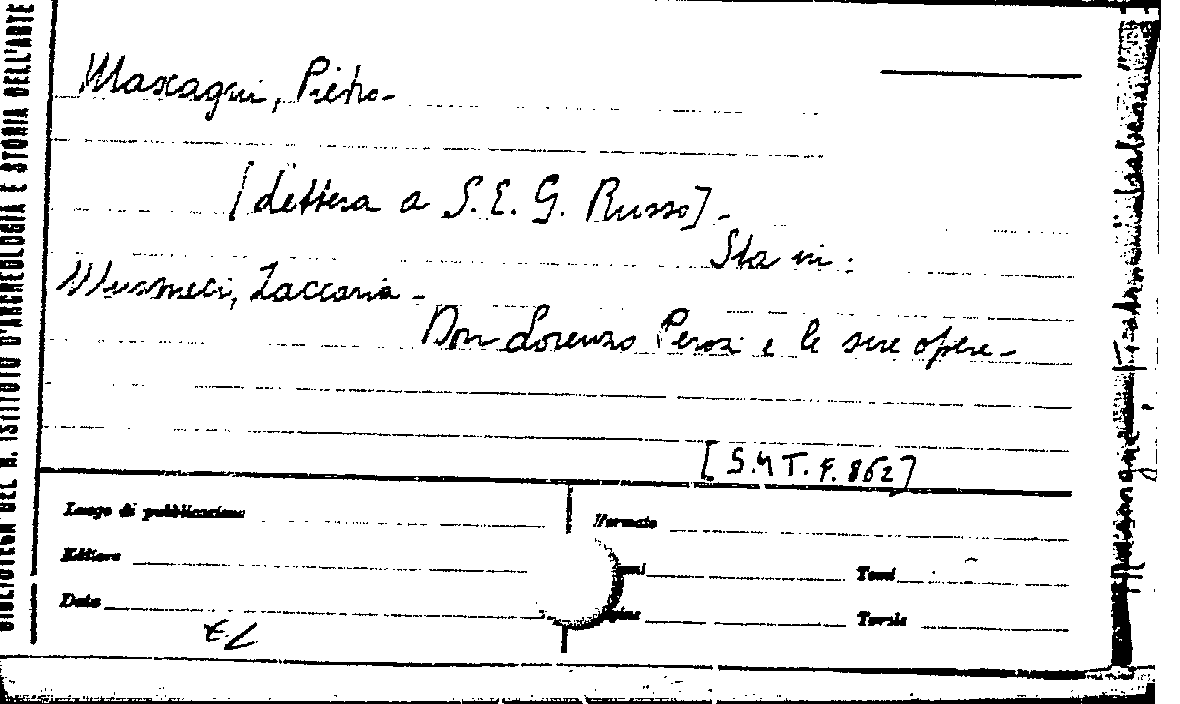 BIBLIOTECA DEL R. ISTITUTO D'ARCHEOLOGIA E STORIA DELL'ARTE
Mascagni, Pietro-
[Lettera a S. E. G. Russo]-
Sta in:
Musmeci, Zaccaria-
Don Lorenzo Perosi e le sue opere-
[S.M T. F. 862]
Luogo di pubblicazione
Formato
Editore
Tomi
Data
Tavole